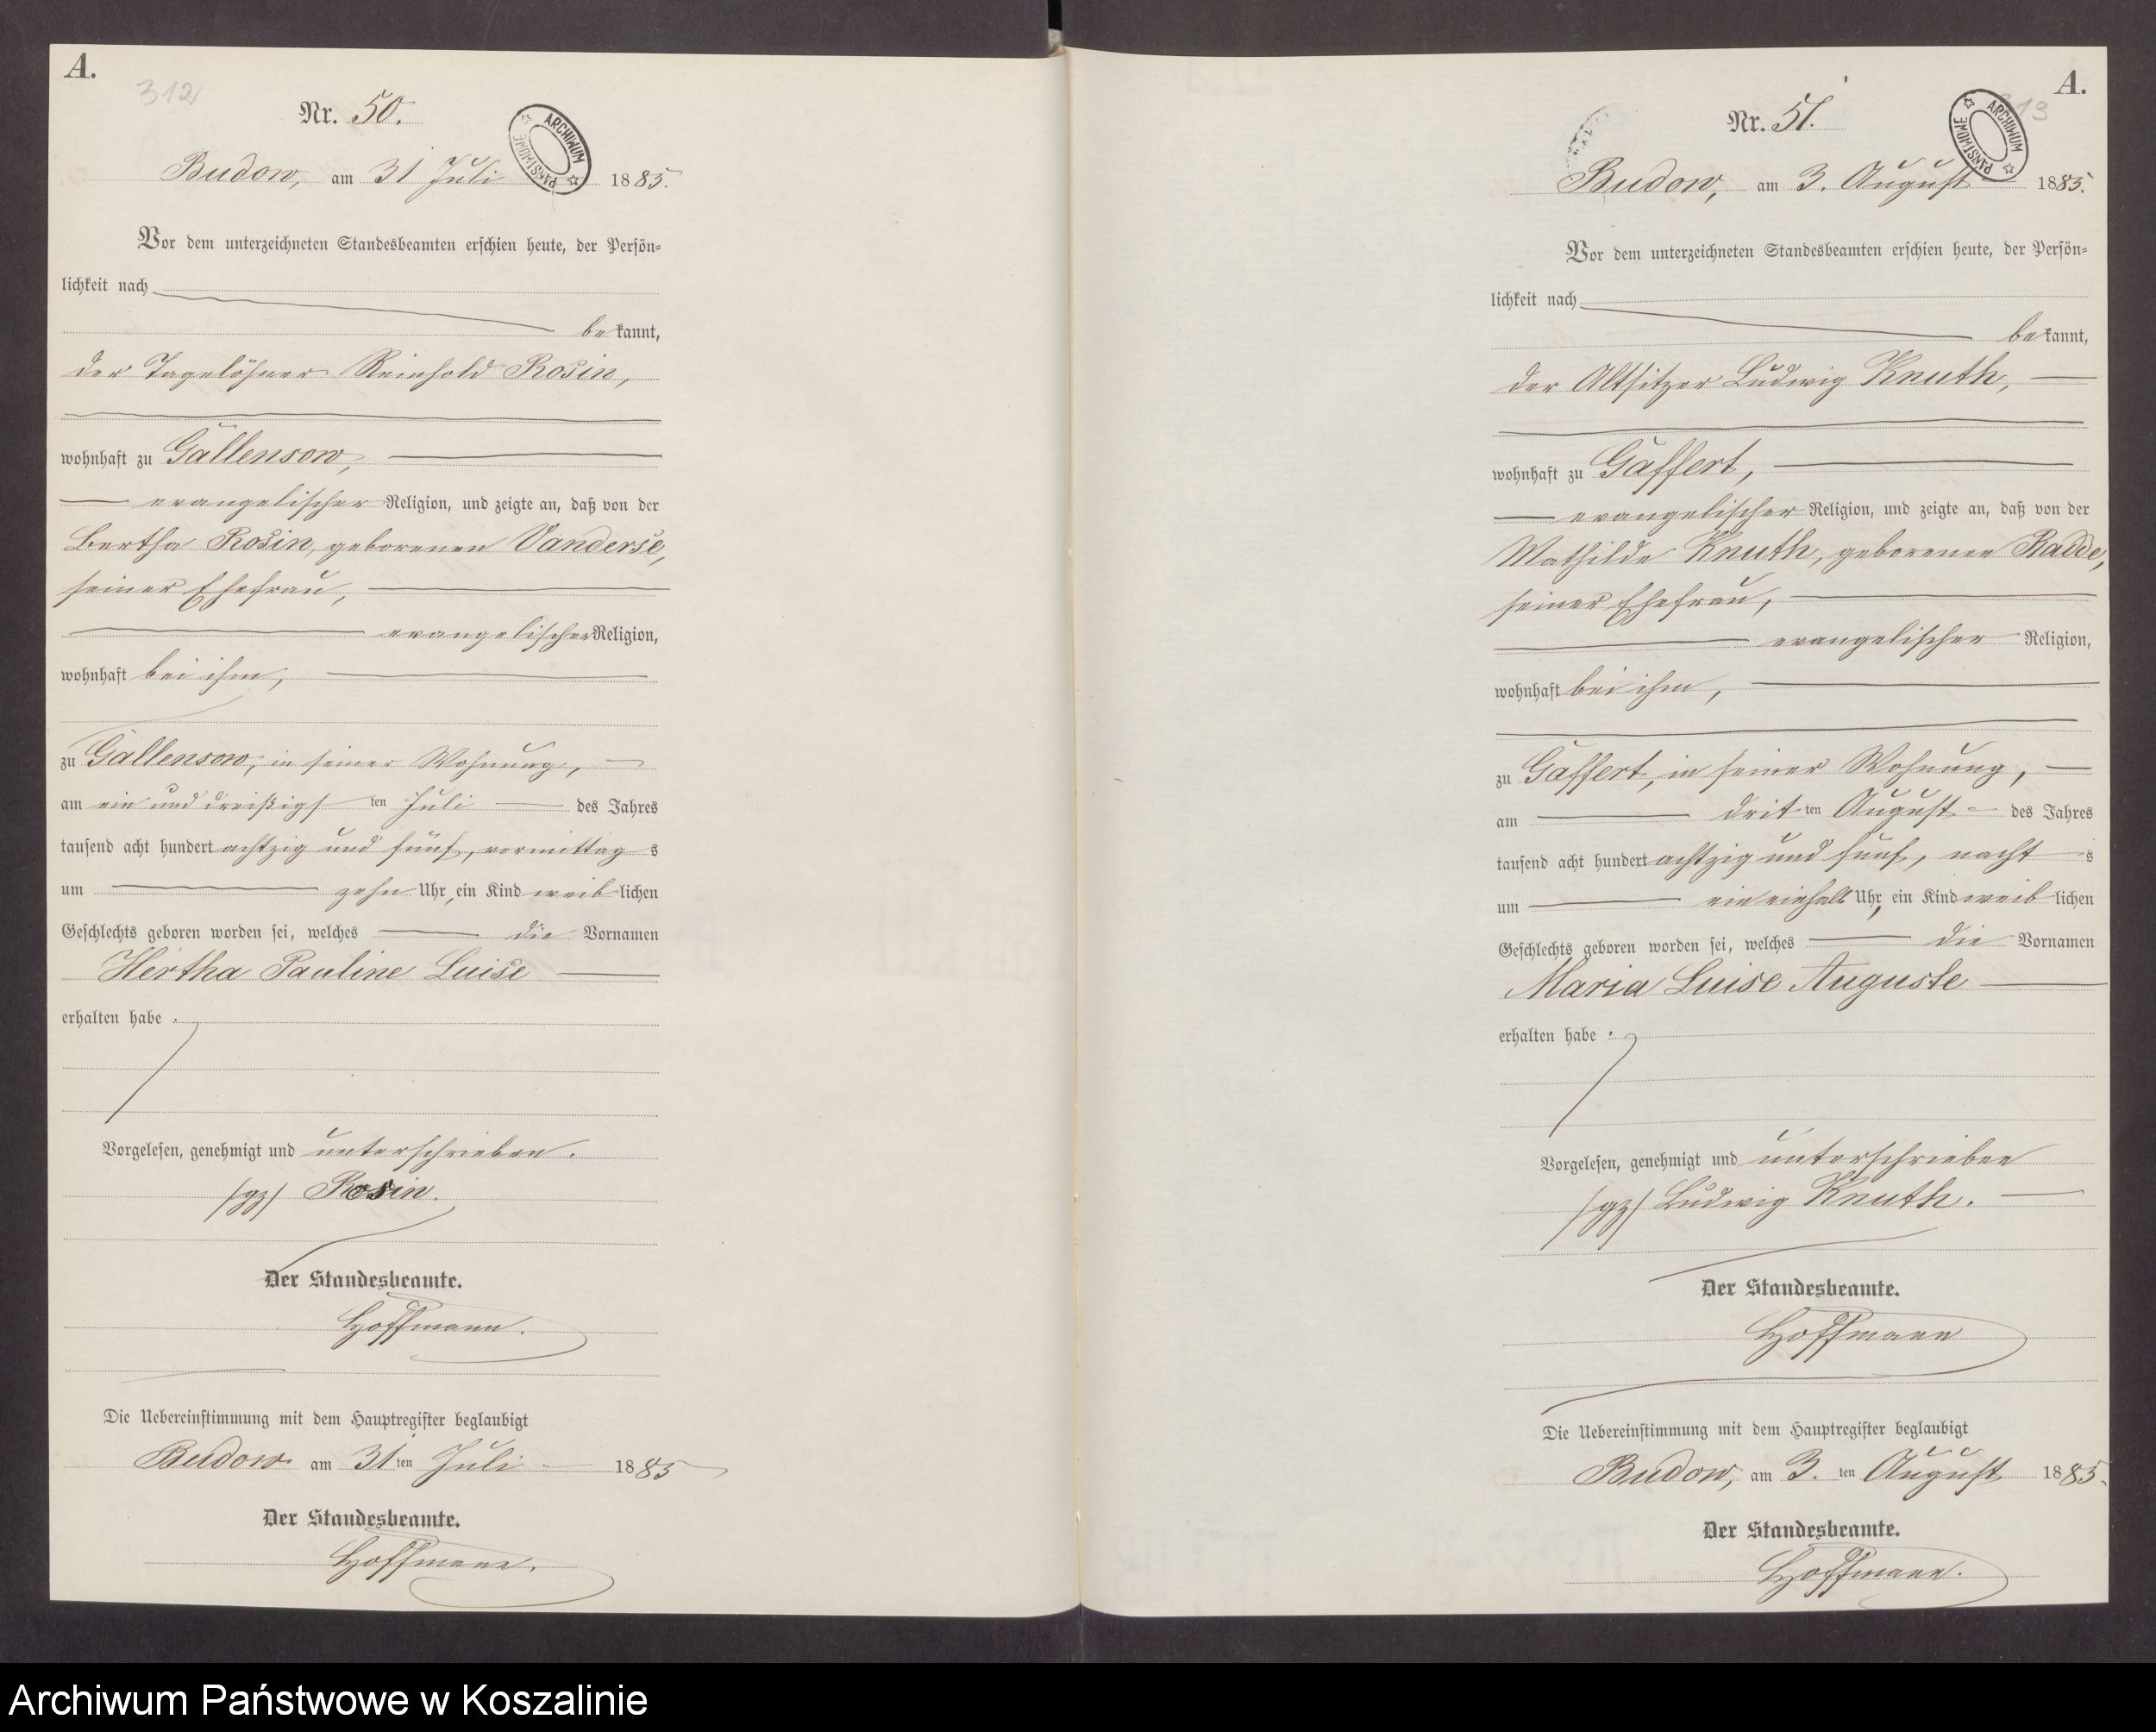 A.
312
Nr. 50.
ARCHIWUM PAŃSTWOWE
Budow, am 31 Juli 1885.
Vor dem unterzeichneten Standesbeamten erschien heute, der Persön-
lichkeit nach
be kannt,
der Tagelöhner Reinhold Rosin,
wohnhaft zu Gallensow,
evangelischer Religion, und zeigte an, daß von der
Bertha Rosin, geborenen Vanderse,
seiner Ehefrau,
evangelischer Religion,
wohnhaft bei ihm,
zu Gallensow, in seiner Wohnung,
am ein und dreißigs ten Juli des Jahres
tausend acht hundert achtzig und fünf, vormittag s
um zehn Uhr, ein Kind weib lichen
Geschlechts geboren worden sei, welches die Vornamen
Hertha Pauline Luise
erhalten habe.
Vorgelesen, genehmigt und unterschrieben.
/gz/ Rosin.
Der Standesbeamte.
Hoffmann.
Die Uebereinstimmung mit dem Hauptregister beglaubigt
Budow am 31 ten Juli 1885
Der Standesbeamte.
Hoffmann.
A.
313
Nr. 51.
ARCHIWUM PAŃSTWOWE
Budow, am 3. August 1885.
Vor dem unterzeichneten Standesbeamten erschien heute, der Persön-
lichkeit nach
be kannt,
der Altsitzer Ludwig Knuth,
wohnhaft zu Gaffert,
evangelischer Religion, und zeigte an, daß von der
Mathilde Knuth, geborenen Radde,
seiner Ehefrau,
evangelischer Religion,
wohnhaft bei ihm,
zu Gaffert, in seiner Wohnung,
am drit ten August des Jahres
tausend acht hundert achtzig und fünf, nacht s
um ein einhalb Uhr, ein Kind weib lichen
Geschlechts geboren worden sei, welches die Vornamen
Maria Luise Auguste
erhalten habe.
Vorgelesen, genehmigt und unterschrieben
/gz/ Ludwig Knuth.
Der Standesbeamte.
Hoffmann
Die Uebereinstimmung mit dem Hauptregister beglaubigt
Budow, am 3. ten August 1885.
Der Standesbeamte.
Hoffmann.
Archiwum Państwowe w Koszalinie